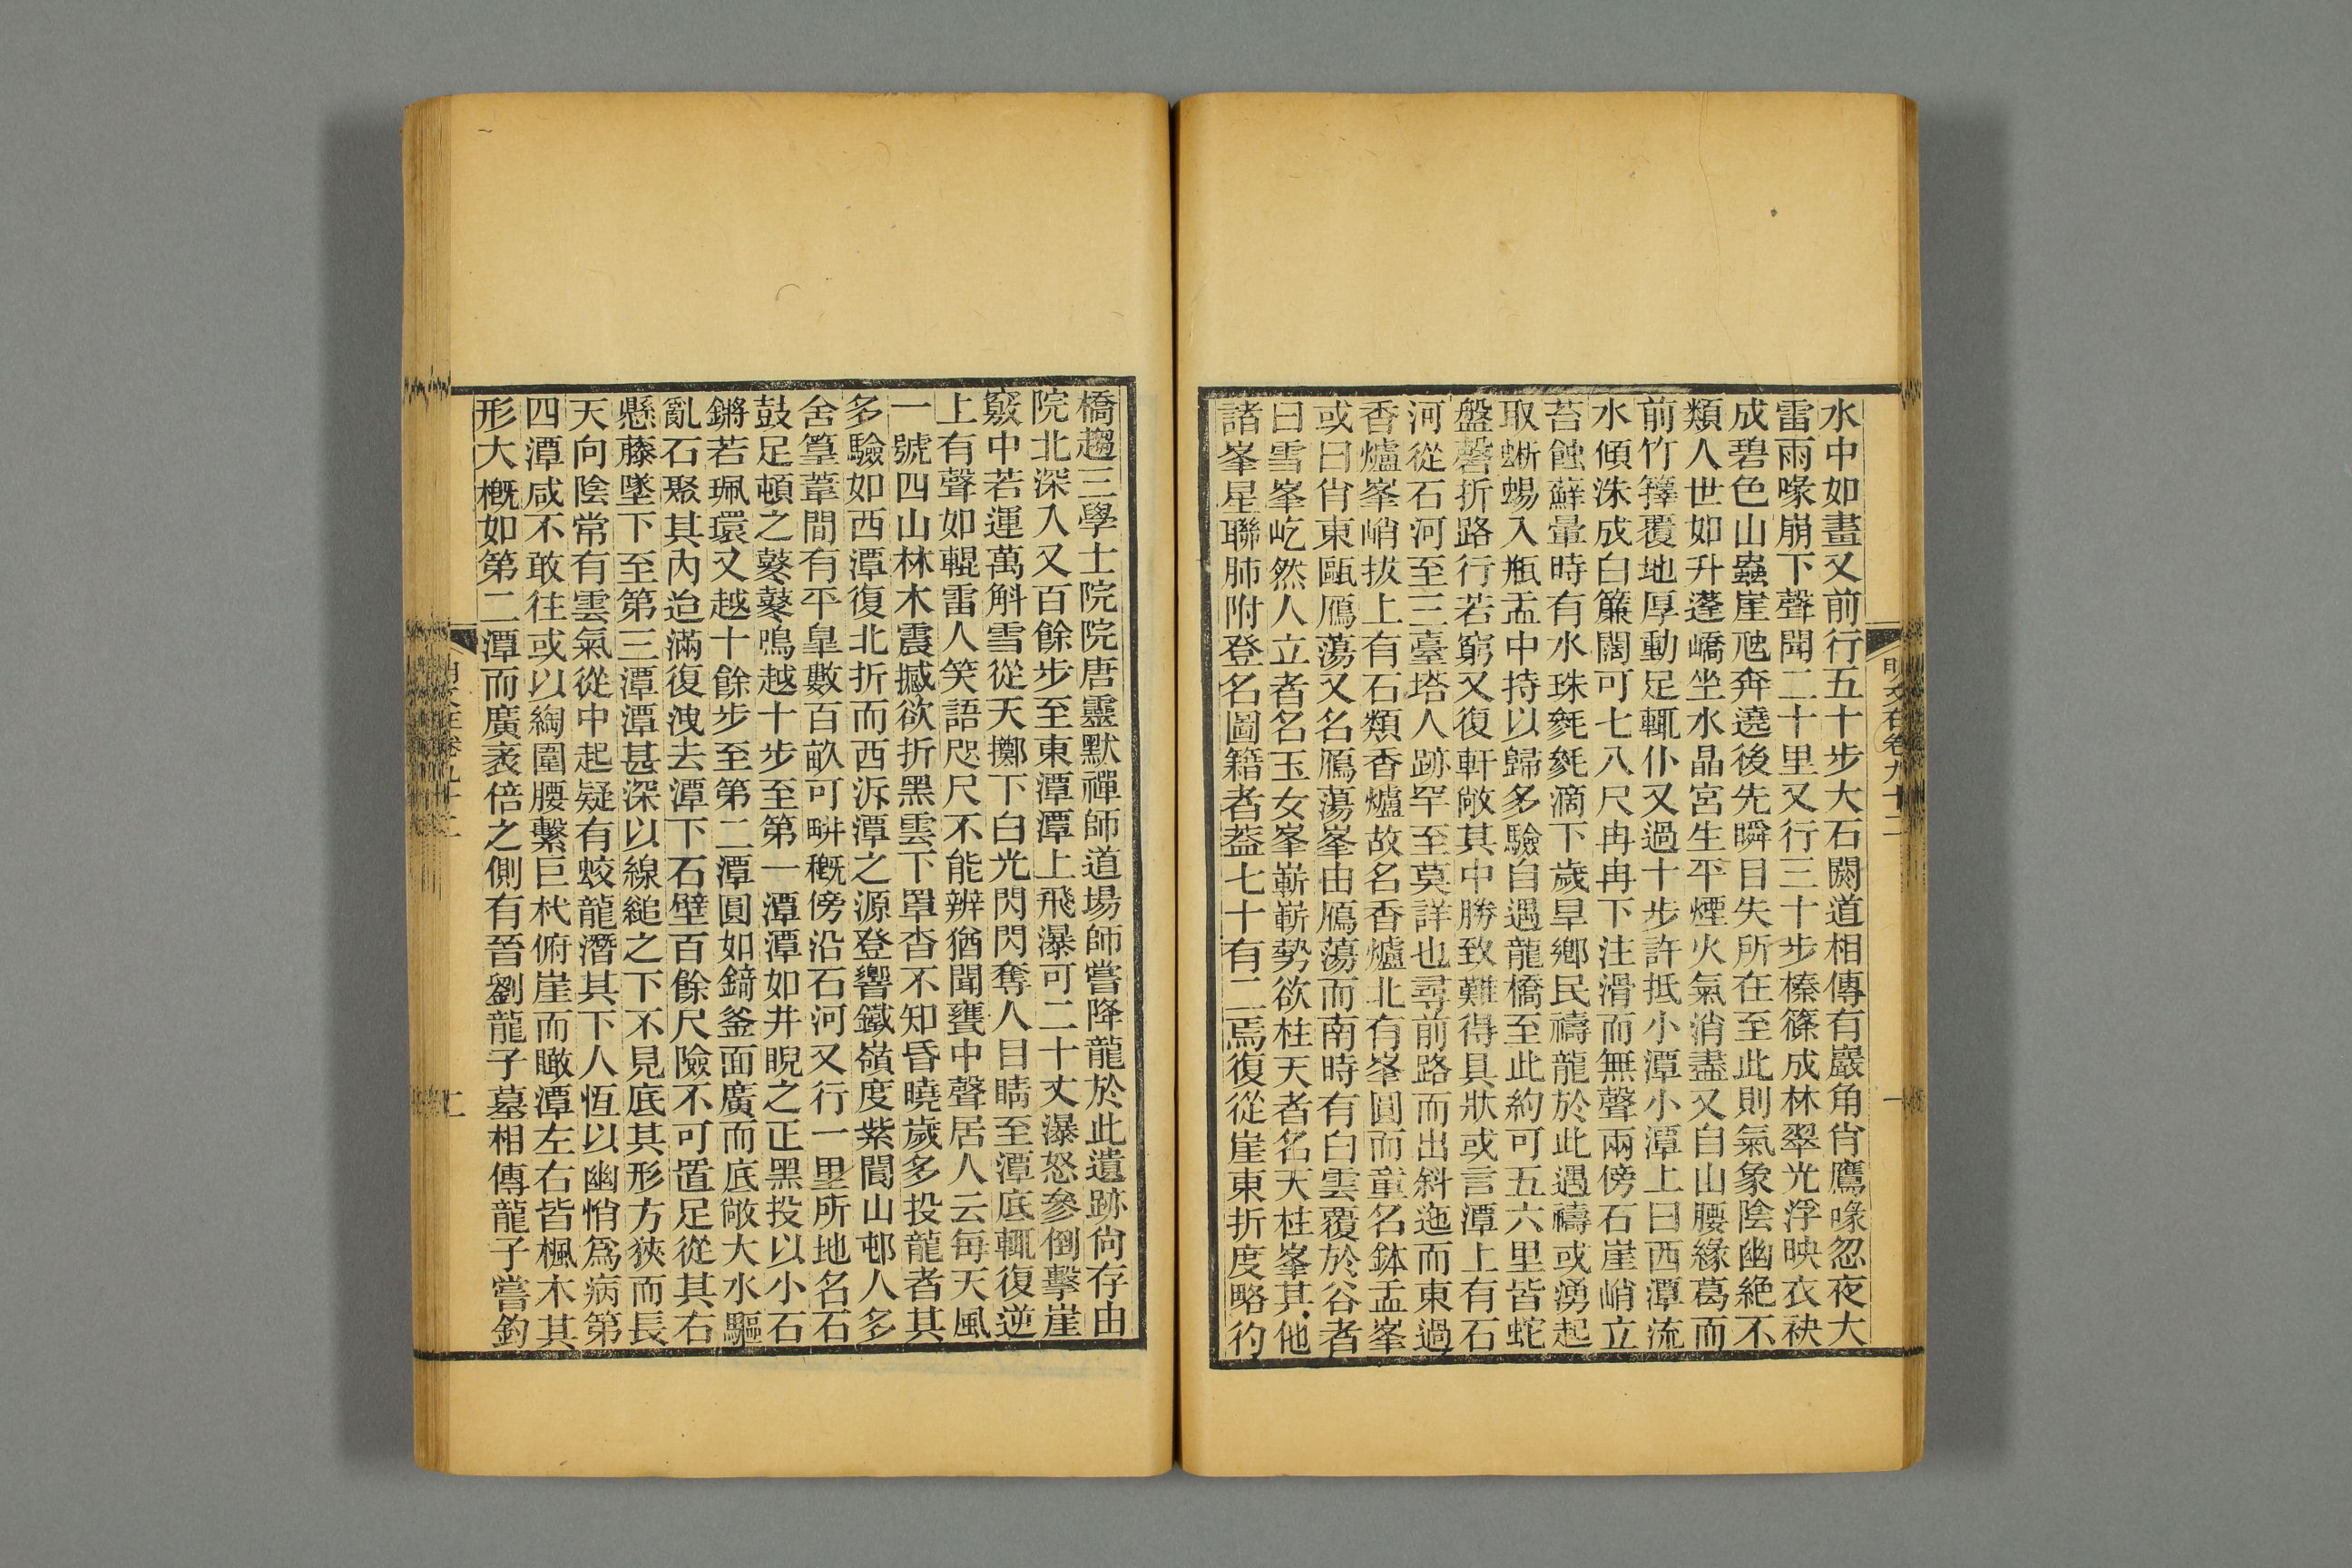 水中如畫又前行五十步大石闕道相傳有巖角肖鷹喙忽夜大
雷雨喙崩下聲聞二十里又行三十步榛篠成林翠光浮映衣袂
成碧色山蟲崖虺奔遶後先瞬目失所在至此則氣象陰幽絶不
類人世如升蓬嶠坐水晶宮生平煙火氣消盡又自山腰緣葛而
前竹籜覆地厚動足輒仆又過十步許抵小潭小潭上曰西潭流
水傾洙成白簾闊可七八尺冉冉下注滑而無聲兩傍石崖峭立
苔蝕蘚暈時有水珠毿毿滴下歲旱鄉民禱龍於此遇禱或湧起
取蜥蜴入瓶盂中持以歸多驗自遇龍橋至此約可五六里皆蛇
盤磬折路行若窮又復軒敞其中勝致難得具狀或言潭上有石
河從石河至三臺塔人跡罕至莫詳也尋前路而出斜迤而東過
香爐峯峭拔上有石類香爐故名香爐北有峯圓而童名鉢盂峯
或曰肖東甌鴈蕩又名鴈蕩峯由鴈蕩而南時有白雲覆於谷者
曰雪峯屹然人立者名玉女峯嶄嶄勢欲柱天者名天柱峯其他
諸峯星聯肺附登名圖籍者葢七十有二焉復從崖東折度略彴
明文在卷九十二
一
橋趨三學士院院唐靈默禪師道場師嘗降龍於此遺跡尙存由
院北深入又百餘步至東潭潭上飛瀑可二十丈瀑怒參倒擊崖
竅中若運萬斛雪從天擲下白光閃閃奪人目睛至潭底輒復逆
上有聲如輥雷人笑語咫尺不能辨猶聞甕中聲居人云每天風
一號四山林木震撼欲折黑雲下罩杳不知昏曉歲多投龍者其
多驗如西潭復北折而西泝潭之源登響鐵嶺度紫閬山邨人多
舍篁葦間有平皐數百畝可畊穊傍沿石河又行一里所地名石
鼓足頓之鼕鼕鳴越十步至第一潭潭如井睨之正黑投以小石
鏘若珮環又越十餘步至第二潭圓如錡釜面廣而底敞大水驅
亂石聚其內迨滿復洩去潭下石壁百餘尺險不可置足從其右
懸藤墜下至第三潭潭甚深以線縋之下不見底其形方狹而長
天向陰常有雲氣從中起疑有蛟龍潛其下人恆以幽悄爲病第
四潭咸不敢往或以綯圍腰繫巨杙俯崖而瞰潭左右皆楓木其
形大概如第二潭而廣袤倍之側有晉劉龍子墓相傳龍子嘗釣
二